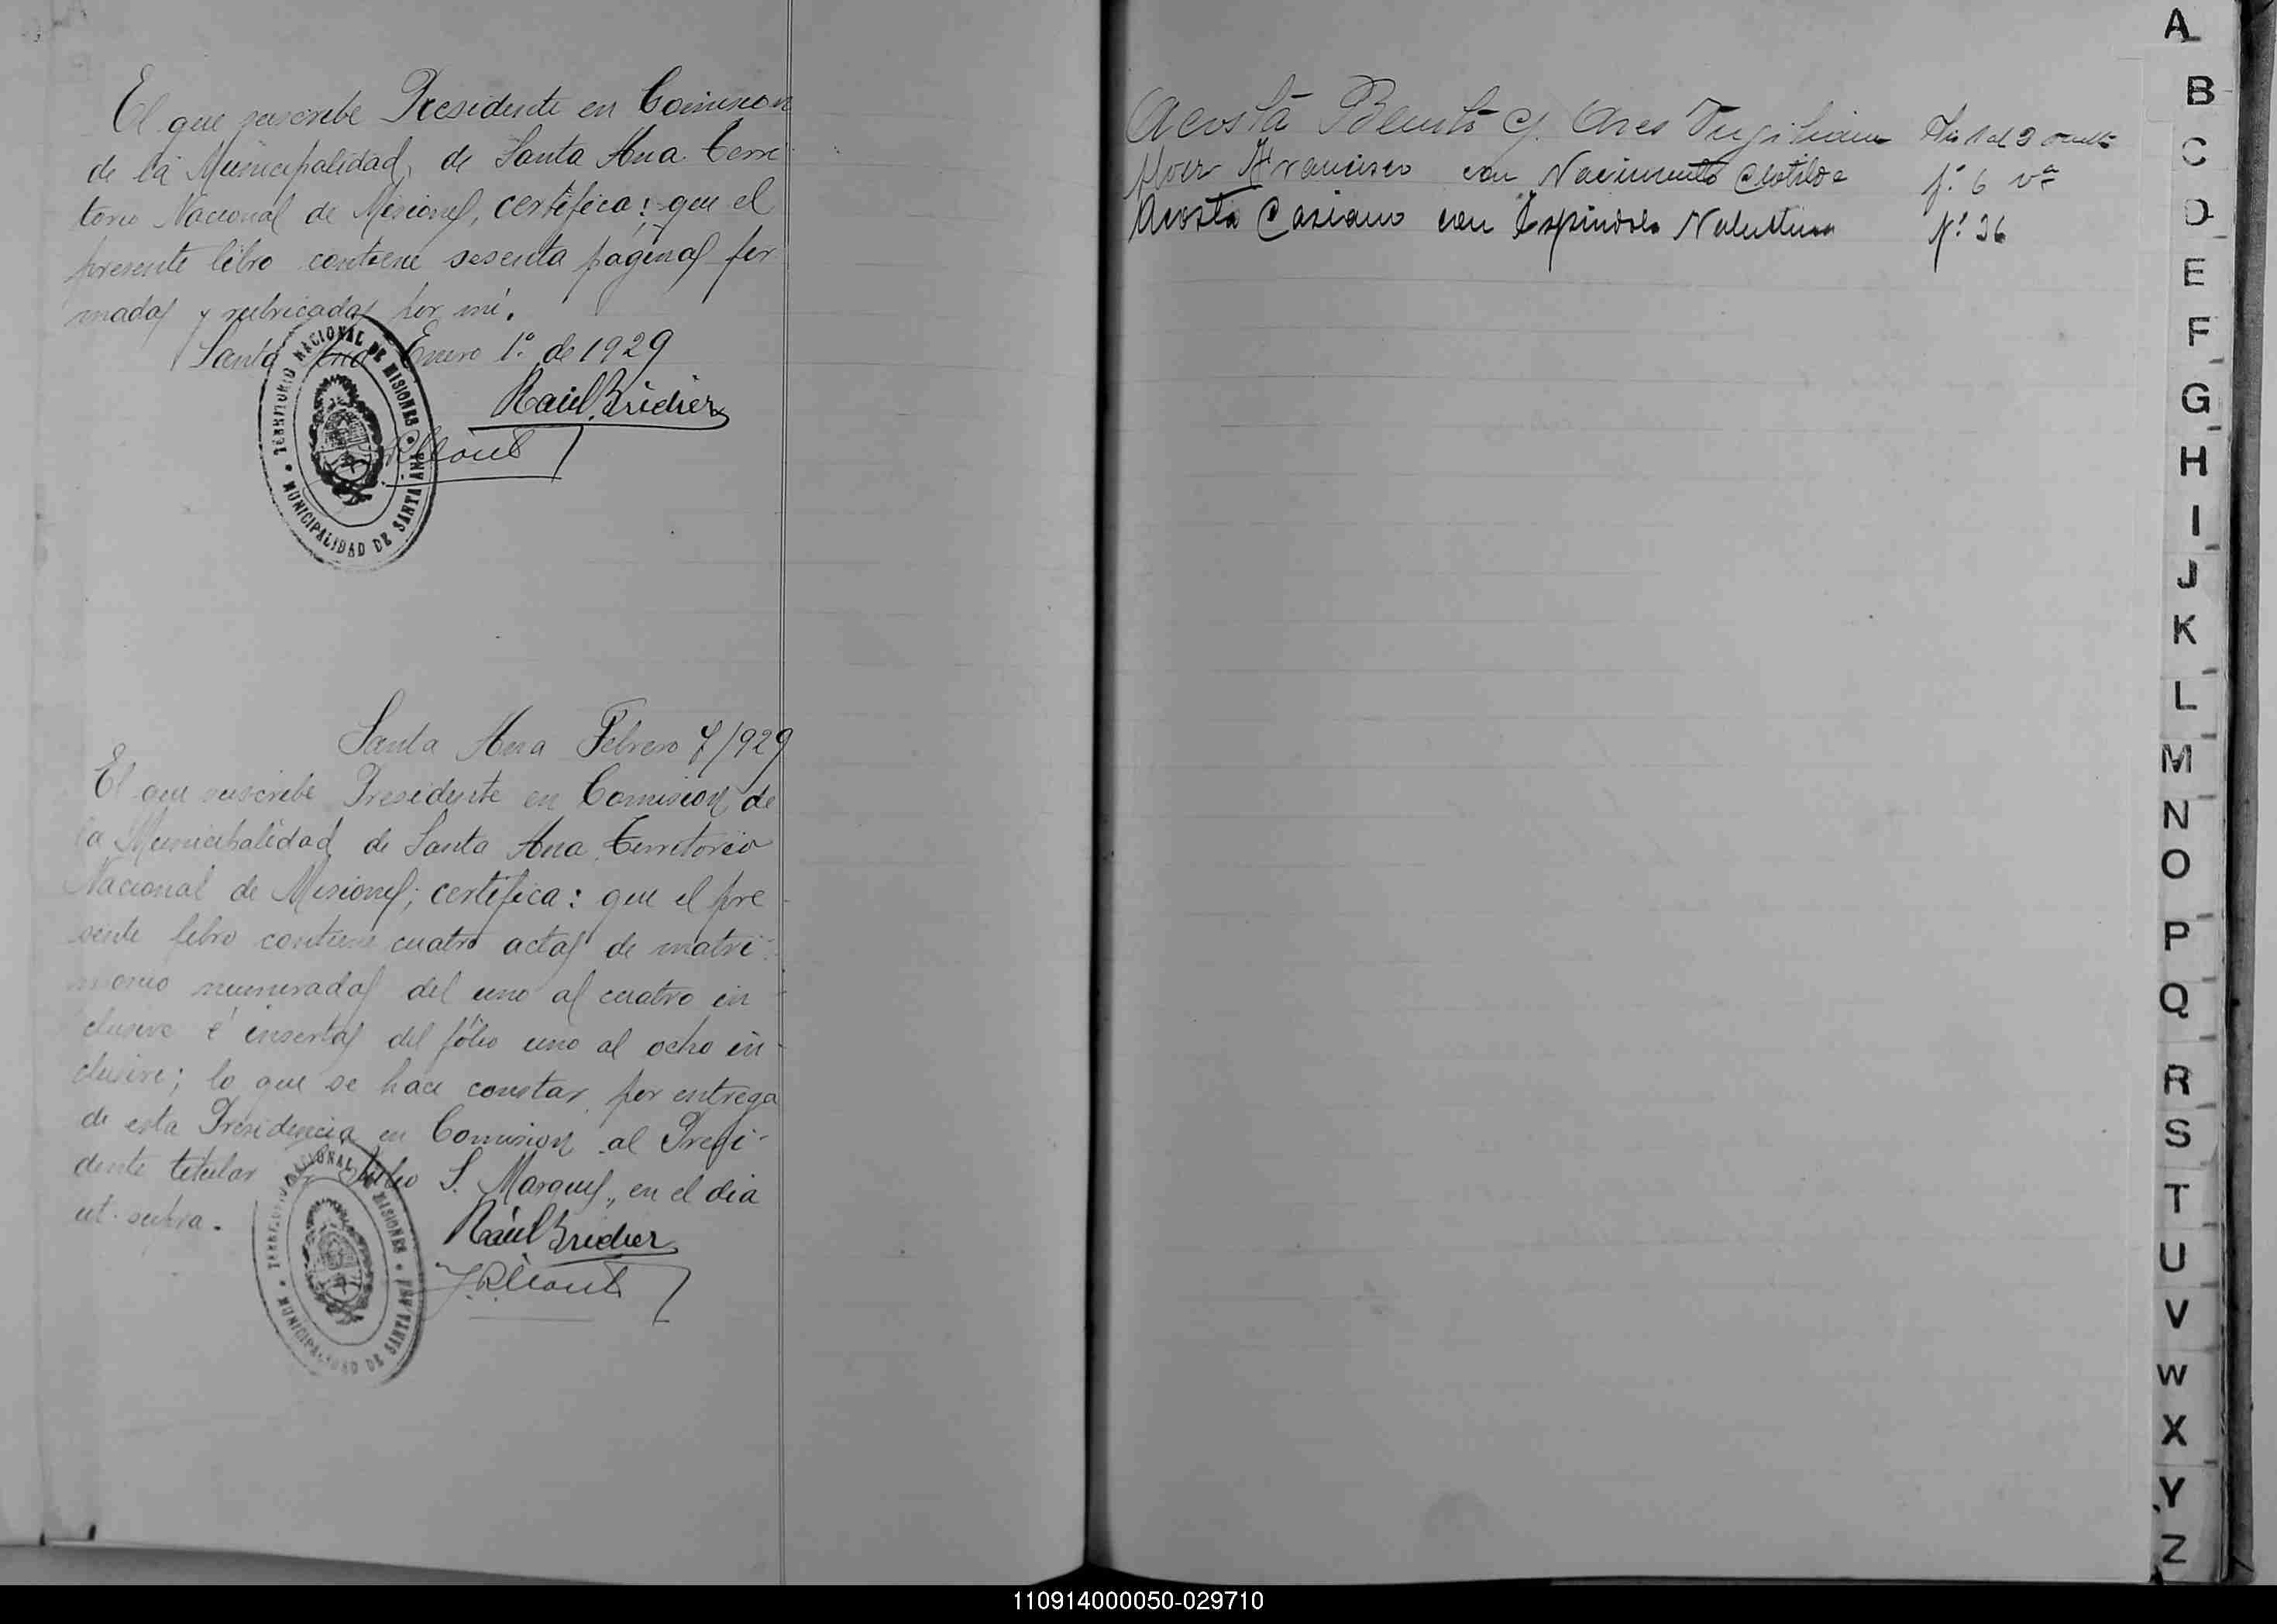 El que suscribe Presidente en Comision
de la Municipalidad, de Santa Ana Terri
torio Nacional de Misiones, certifica: que el
presente libro contiene sesenta paginas fir
madas y rubricadas por mí.
Santa Ana Enero 1º de 1929
Raúl Bridier
TERRITORIO NACIONAL DE MISIONES
MUNICIPALIDAD DE SANTA ANA
Santa Ana Febrero 7/929
El que suscribe Presidente en Comision de
la Municipalidad de Santa Ana Territorio
Nacional de Misiones; certifica: que el pre
sente libro contiene cuatro actas de matri-
monio numeradas del uno al cuatro in
clusive é insertas del fólio uno al ocho in
clusive; lo que se hace constar por entrega
de esta Presidencia en Comision al Presi-
dente titular Julio S. Marques, en el dia
ut-supra.
Raúl Bridier
TERRITORIO NACIONAL DE MISIONES
MUNICIPALIDAD DE SANTA ANA
Acosta Benito y Ares Virgiliana
Francisco con Nacimiento Clotilde fº 6 vta
Acosta Casiano con Espindola Valentina fº 36
A
B
C
D
E
F
G
H
I
J
K
L
M
N
O
P
Q
R
S
T
U
V
W
X
Y
Z
110914000050-029710